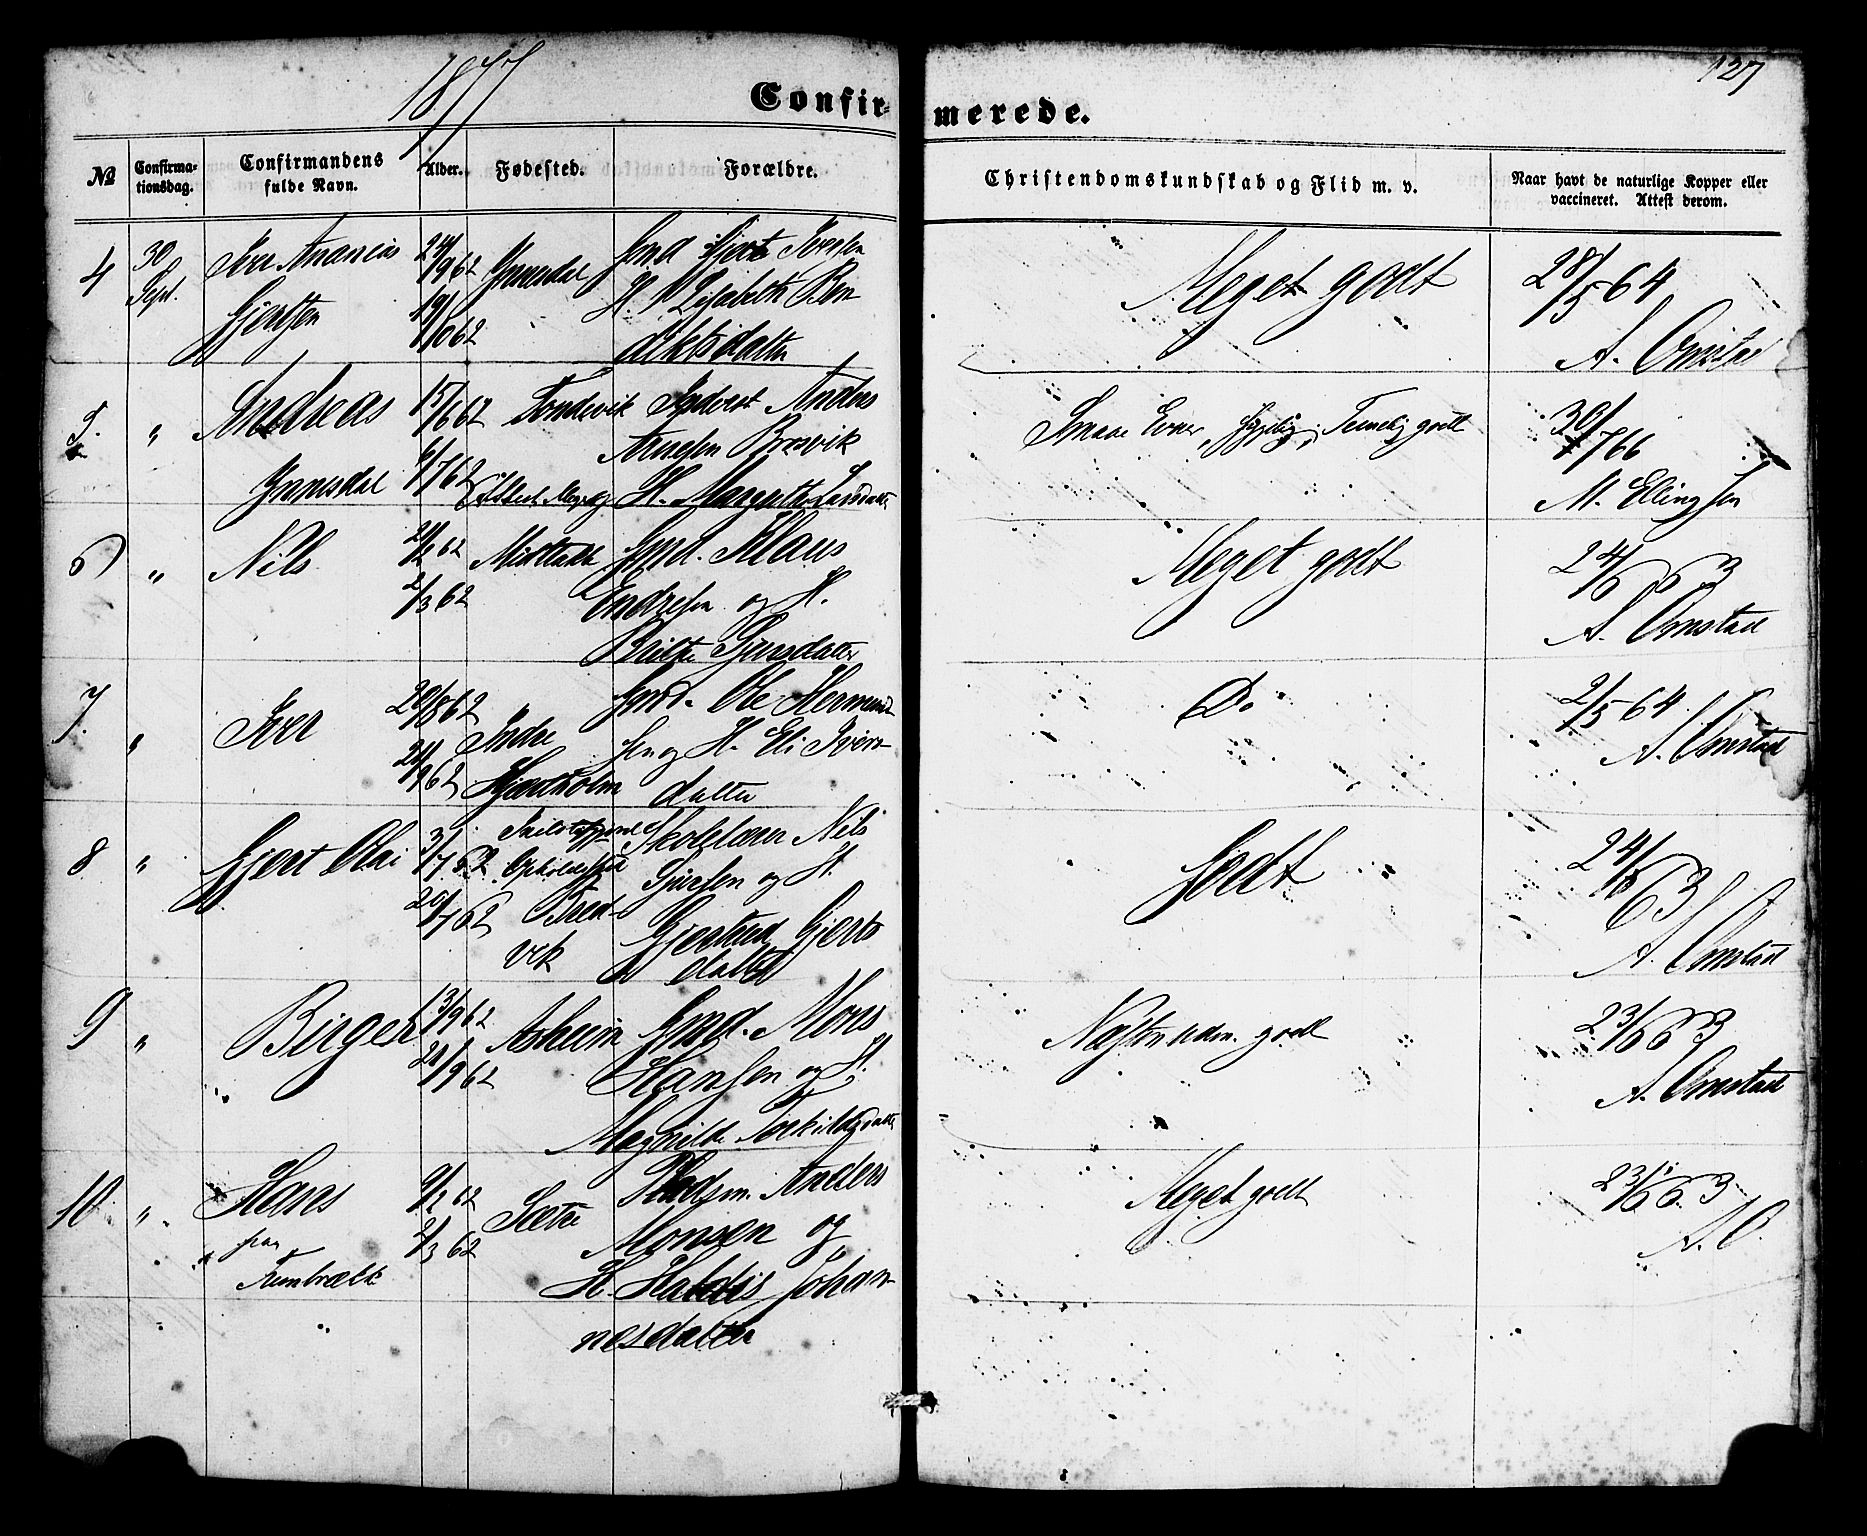 1877
127
Confirmerede.
№
Confirma-
tionsdag.
Confirmandens
fulde Navn.
Alder.
Fødested.
Forældre.
Christendomskundskab og Flid m. v.
Naar havt de naturlige Kopper eller
vaccineret. Attest derom.
4
30
Sept.
Iver Ananias
Gjertsen
24/9 62
19/10 62
Ynnesdal
Gmd Gjert Iversen
H. Lisabeth Ben
diktsdatter
Meget godt
28/5 64
A. Omstad
5.
"
Andreas
Ynnesdal
15/6 62
6/7 62
Indverst Anders
Brosvik
H. Margrethe Larsdatter
Smaae Evner, Temelig godt
30/7 66
M. Ellingsen
6
"
Nils
2/3 62
Gmd. Klaus
Endresen og H.
Britte
Meget godt
24/6 63
A. Omstad
7.
"
Iver
20/8 62
21/9 62
Indre
Hjartholm
Gmd. Ole Hermund-
sen og H. Eli Ivers-
datter
Do
2/5 64
A. Omstad
8
"
Gjert Olai
3/7 62
20/7 62
Opholdssted
Bred-
vik
Skolelærer Nils
og H.
Gjertrud Gjerts
datter
Godt
24/6 63
A. Omstad
9
"
Birger
13/9 62
21/9 62
Asheim
Gmd. Mons
Hansen og H.
Magnilde Torkildsdatter
Næsten udm. godt
23/6 63
A. Omstad
10.
"
Hans
fra
2/3 62
Sætre
Pladsm. Anders
Monsen og
H. Haldis Johan-
nesdatter
Meget godt
23/6 63
A. O.